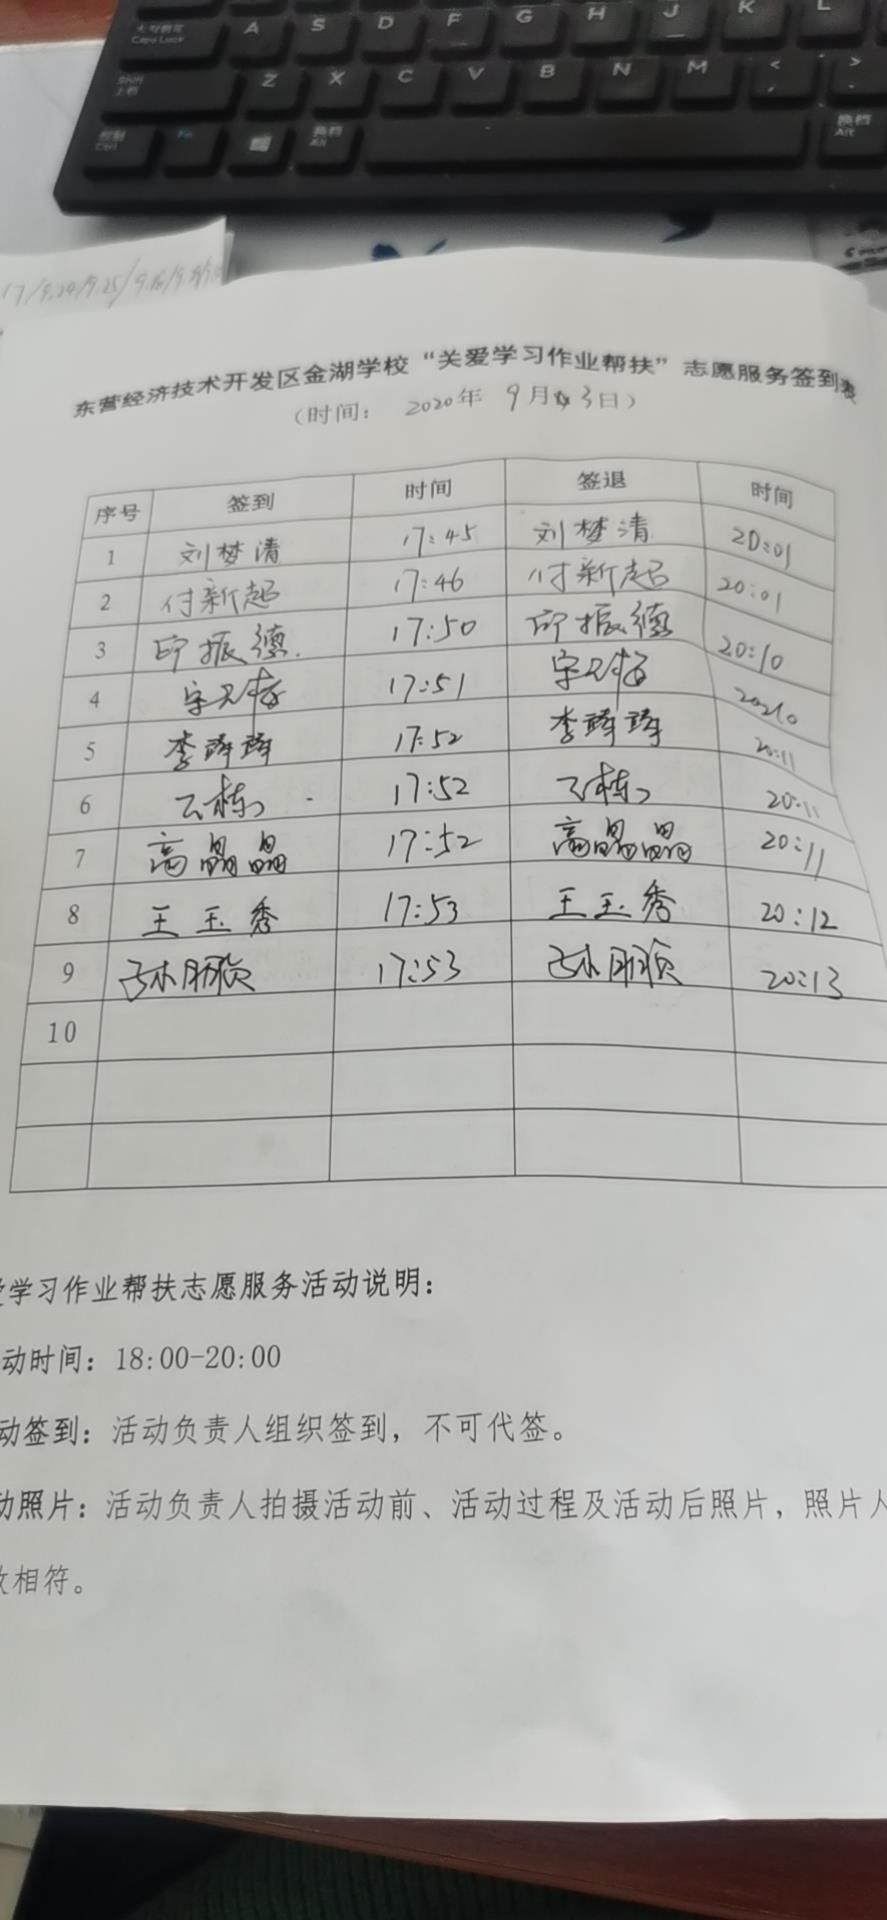 大写锁定 A S D F G H J K L
Caps Lock
Shift
上档 Z X C V B N M < >
控制 Fn 换档 换档
Ctrl Alt Alt
东营经济技术开发区金湖学校“关爱学习作业帮扶”志愿服务签到表
（时间： 2020年 9月3日）
序号 签到 时间 签退 时间
1 刘梦清 17:45 刘梦清 20:01
2 付新起 17:46 付新起 20:01
3 印振德 17:50 印振德 20:10
4 17:51 20:10
5 李瑋瑋 17:52 李瑋瑋 20:11
6 17:52 20:11
7 高晶晶 17:52 高晶晶 20:11
8 王玉秀 17:53 王玉秀 20:12
9 17:53 20:13
10
爱学习作业帮扶志愿服务活动说明：
动时间：18:00-20:00
动签到：活动负责人组织签到，不可代签。
动照片：活动负责人拍摄活动前、活动过程及活动后照片，照片人
数相符。